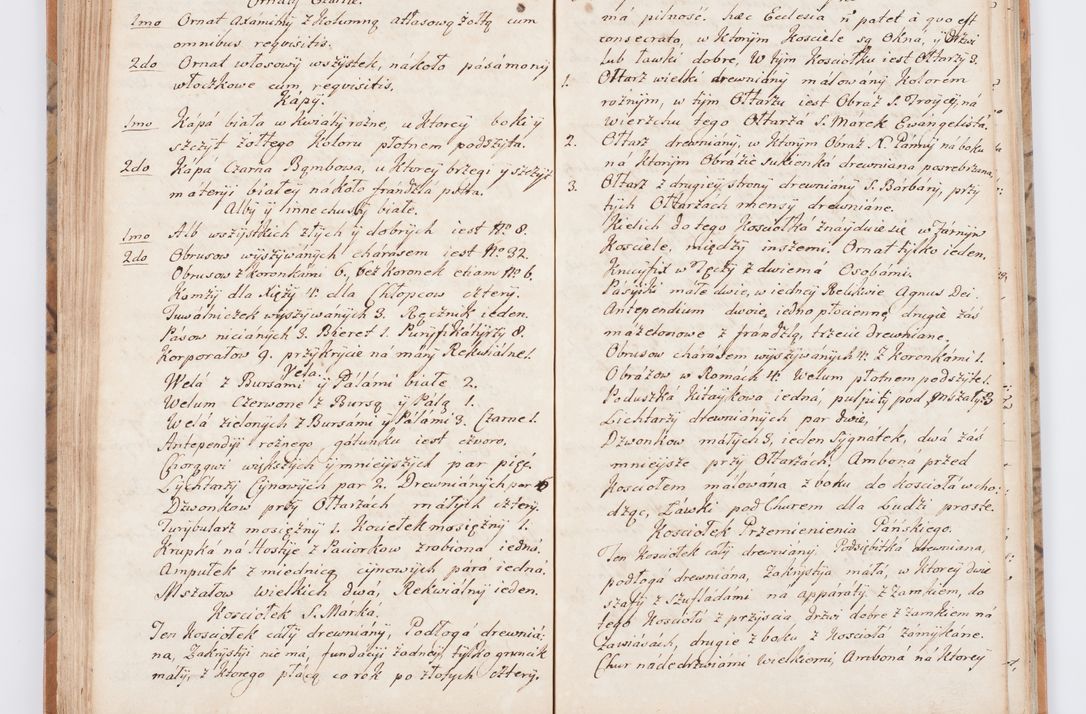 Ornaty Czarne.
1mo Ornat Axamitny z Kolumną atłasową żołtą cum
omnibus reqvisitis.
2do Ornat włosowy wszystek, nákoło pásámony
włoczkowe cum reqvisitis.
Kapy.
1mo Kápá biała w kwiaty rożne, u ktorey boki y
szczyt żołtego Koloru płotnem podszyta.
2do Kápá Czarna Bąmbowa, u ktorey brzegi y szczyt
máteryi białey nákoło frándzla pstra.
Alby y inne chusty białe.
1mo Alb wszystkich złych y dobrych iest No 8.
2do Obrusow wyszywánych chárasem iest No 32.
Obrusow z Koronkámi 6, bez koronek etiam No 6.
Komży dla Xięży 4. dla Chłopcow cztery.
Tuwálniczek wyszywanych 3. Ręcznik ieden.
Pásow niciánych 3. Bieret 1. Puryfikátyrzy 8.
Korporałow 9. przykrycie ná máry Rekwiálne 1.
Vela.
Welá z Bursámi y Pálámi białe 2.
Welum Czerwone z Bursą y Pálą 1.
Welá zielonych z Bursámi y Pálámi 3. Czarne 1.
Antependyi rożnego gátunku iest czworo.
Chorągwi większych y mnieyszych par pięć.
Lychtarzy Cynowych par 2. Drewniánych par 6
Dzwonkow przy Ołtarzách máłych cztery.
Turybularz mosiężny 1. Kociełek mosiężny 1.
Krupká ná Hostye z Paciorkow zrobioná iedná.
Ampułek z miednicą cynowych párá iedná.
Mszałow wielkich dwá, Rekwiálny ieden.
Kościołek S. Marká.
Ten Kościołek cáły drewniány, Podłogá drewniá:
na, Zakrystyi nie má, fundácyi żadney, tylko gruncik
mały, z ktorego płácą co rok po złotych cztery.
má pilność. hæc Ecclesia ñ patet á quo est
consecrata, w ktorym Kościele są Okná, y Drzwi
lub ławki dobre, W tym Kościołku iest Ołtarzy 3.
1. Ołtarz wielki drewniány málowány Kolorem
rożnym, w tym Ołtarzu iest Obraz S. Troycy, ná
wierzchu tego Ołtarzá S. Márek Ewangelistá.
2. Ołtarz drewniány, w ktorym Obraz N. Pánny na boku
ná ktorym Obrázie sukienká drewniana posrebrzana,
3. Ołtarz z drugiey strony drewniány S. Bárbary, przy
tych Ołtarzách mensy drewniáne.
Kielich do tego Kościołká znáyduie się w Fárnym
Kościele, między inszemi. Ornat tylko ieden.
Krucyfix w Tęczy z dwiema Osobámi.
Pásyiki máłe dwie, w iedney Relikwie Agnus Dei.
Antependium dwoie, iedno płocienne, drugie záś
mázelonowe z frándzlą, trzecie drewniane.
Obrusow chárasem wyszywanych 4. z koronkámi 1.
Obrázow w Ramách 4. Welum płotnem podszyte 1.
Poduszká Kitáykowa iedna, pulpity pod Mszały 3
Lichtarzy drewniánych par dwie,
Dzwonkow máłych 3, ieden Sygnałek, dwá záś
mnieysze przy Ołtarzách. Amboná przed
Kościołem málowana z boku do kościołá wcho:
dząc, Ławki pod Churem dla Ludzi proste.
Kościołek Przemienienia Páńskiego.
Ten Kościołek cáły drewniány. Podsiębitká drewniana,
podłogá drewniána, Zakrystya máłá, w ktorey dwie
szafy z Szufládámi na appáraty z Zamkiem, do
tego Kościołá z przyscia, drzwi dobre z zamkiem ná
Zawiásách, drugie z boku z Kościołá zámykáne.
Chur nadedrzwiámi wielkiemi, Ambona ná ktorey